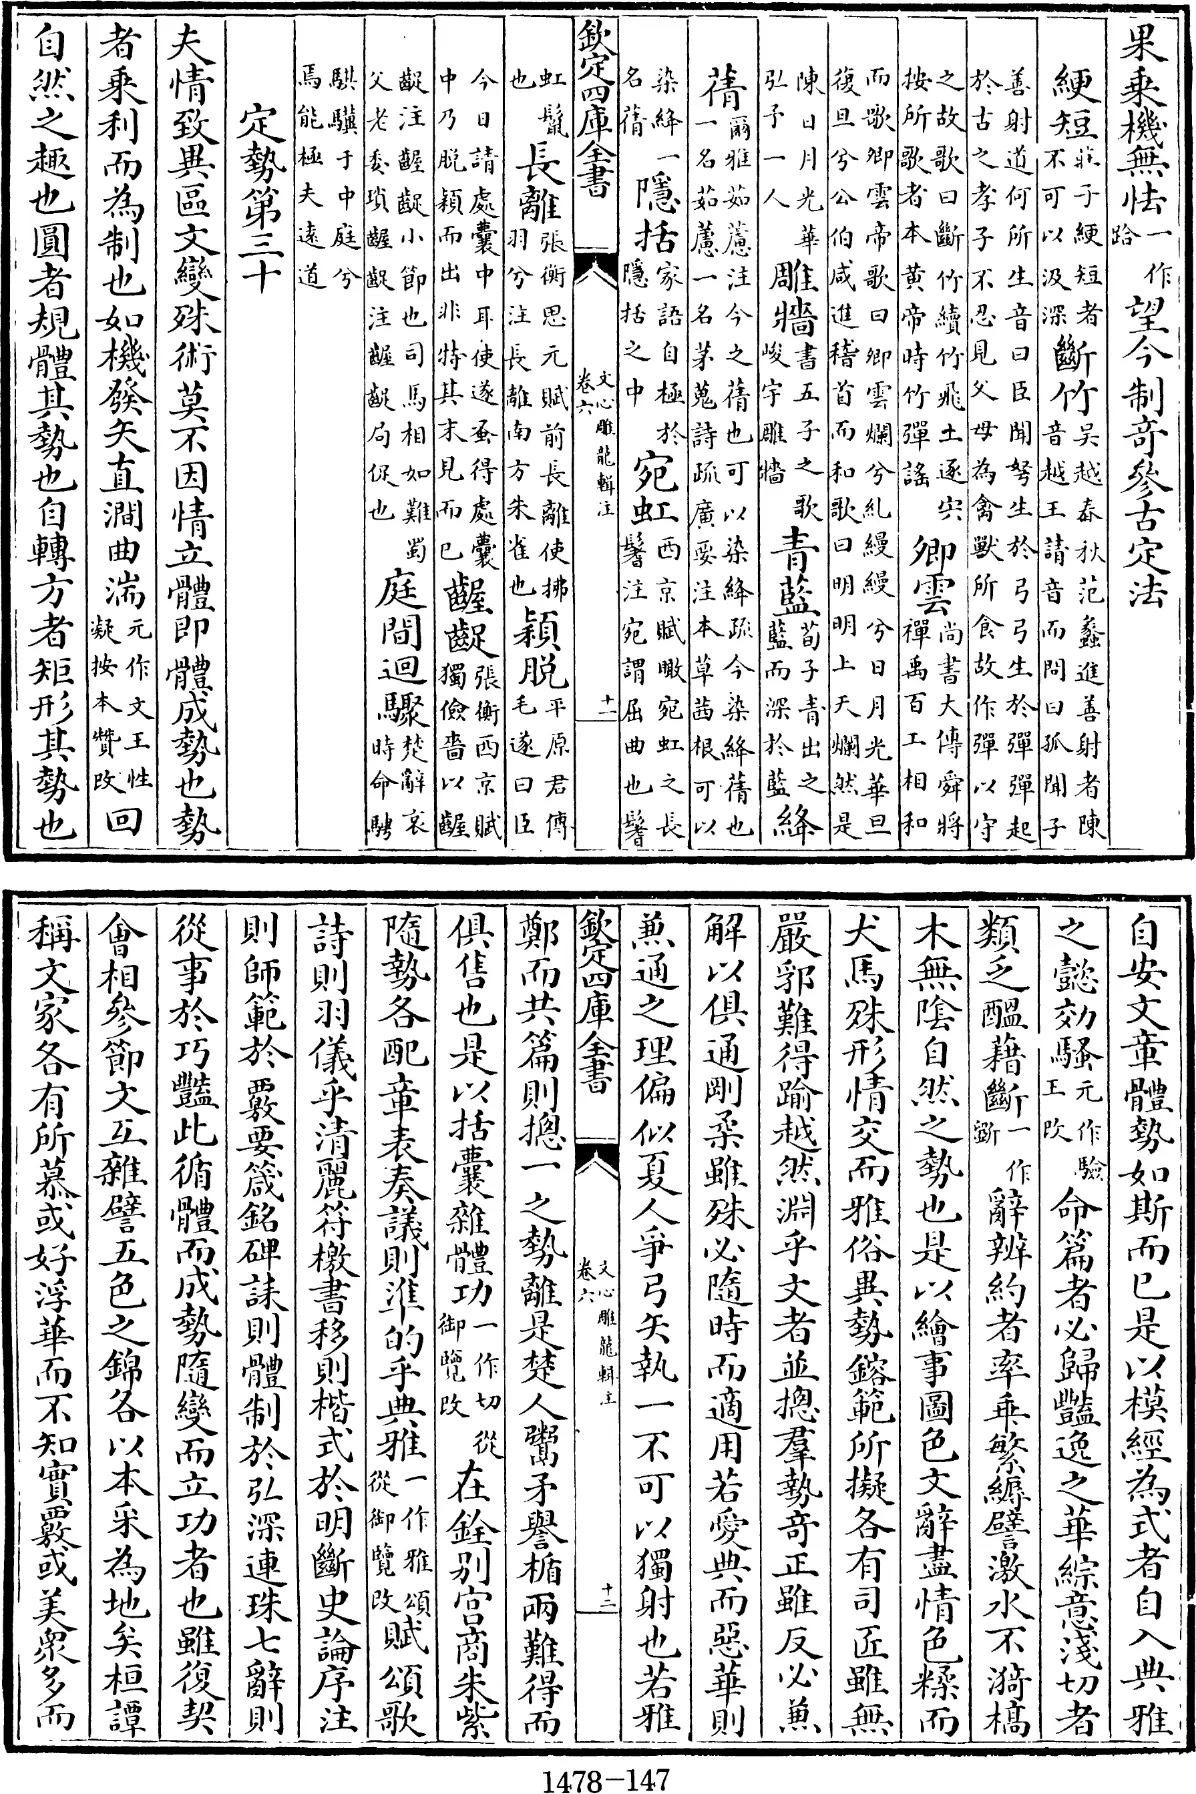 果乗機無怯一作跲望今制奇參古定法
綆短莊子綆短者不可以汲深斷竹吳越春秋范蠡進善射者陳音越王請音而問曰孤聞子
善射道何所生音曰臣聞弩生於弓弓生於彈彈起於古之孝子不忍見父母為禽獸所食故作彈以守
之故歌曰斷竹續竹飛土逐宍按所歌者本黄帝時竹彈謡卿雲尚書大傳舜將禪禹百工相和
而歌卿雲帝歌曰卿雲爛兮糺縵縵兮日月光華旦復旦兮公伯咸進稽首而和歌曰明明上天爛然是
陳日月光華弘予一人雕牆書五子之歌峻宇雕牆青藍荀子青出之藍而深於藍絳
蒨爾雅茹藘注今之蒨也可以染絳疏今染絳蒨也一名茹藘一名茅蒐詩疏廣要注本草茜根可以
染絳一名蒨隱括家語自極於隱括之中宛虹西京賦瞰宛虹之長鬐注宛謂屈曲也鬐
欽定四庫全書 文心雕龍輯注 卷六 十一
虹鬛也長離張衡思元賦前長離使拂羽兮注長離南方朱雀也穎脱平原君傳毛遂曰臣
今日請處囊中耳使遂蚤得處囊中乃脱穎而出非特其末見而已齷齪張衡西京賦獨儉嗇以齷
齪注齷齪小節也司馬相如難蜀父老委瑣齷齪注齷齪局促也庭間迴驟楚辭哀時命騁
騏驥于中庭兮焉能極夫逺道
定勢第三十
夫情致異區文變殊術莫不因情立體即體成勢也勢
者乗利而為制也如機發矢直澗曲湍元作文王性凝按本贊改回
自然之趣也圓者規體其勢也自轉方者矩形其勢也
自安文章體勢如斯而已是以模經為式者自入典雅
之懿効騷元作驗王改命篇者必歸豔逸之華綜意淺切者
類乏醖藉斷一作斵辭辨約者率乖繁縟譬激水不漪槁
木無陰自然之勢也是以繪事圖色文辭盡情色糅而
犬馬殊形情交而雅俗異勢鎔範所擬各有司匠雖無
嚴郛難得踰越然淵乎文者並摠羣勢奇正雖反必兼
解以俱通剛柔雖殊必隨時而適用若愛典而惡華則
兼通之理偏似夏人爭弓矢執一不可以獨射也若雅
欽定四庫全書 文心雕龍輯注 卷六 十二
鄭而共篇則摠一之勢離是楚人鬻矛譽楯兩難得而
俱售也是以括囊雜體功一作切從御覽改在銓别宫商朱紫
隨勢各配章表奏議則準的乎典雅一作雅頌從御覽改賦頌歌
詩則羽儀乎清麗符檄書移則楷式於明斷史論序注
則師範於覈要箴銘碑誄則體制於弘深連珠七辭則
從事於巧豔此循體而成勢隨變而立功者也雖復契
㑹相參節文互雜譬五色之錦各以本采為地矣桓譚
稱文家各有所慕或好浮華而不知實覈或美衆多而
1478—147